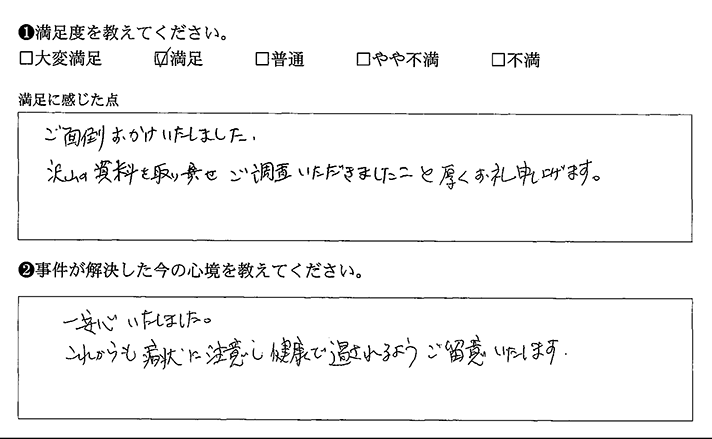 ❶満足度を教えてください。
□大変満足 ☑満足 □普通 □やや不満 □不満
満足に感じた点
ご面倒おかけいたしました.
沢山の資料を取り寄せご調査いただきましたこと厚くお礼申し上げます。
❷事件が解決した今の心境を教えてください。
一安心いたしました。
これからも病状に注意し健康で過されるようご留意いたします.